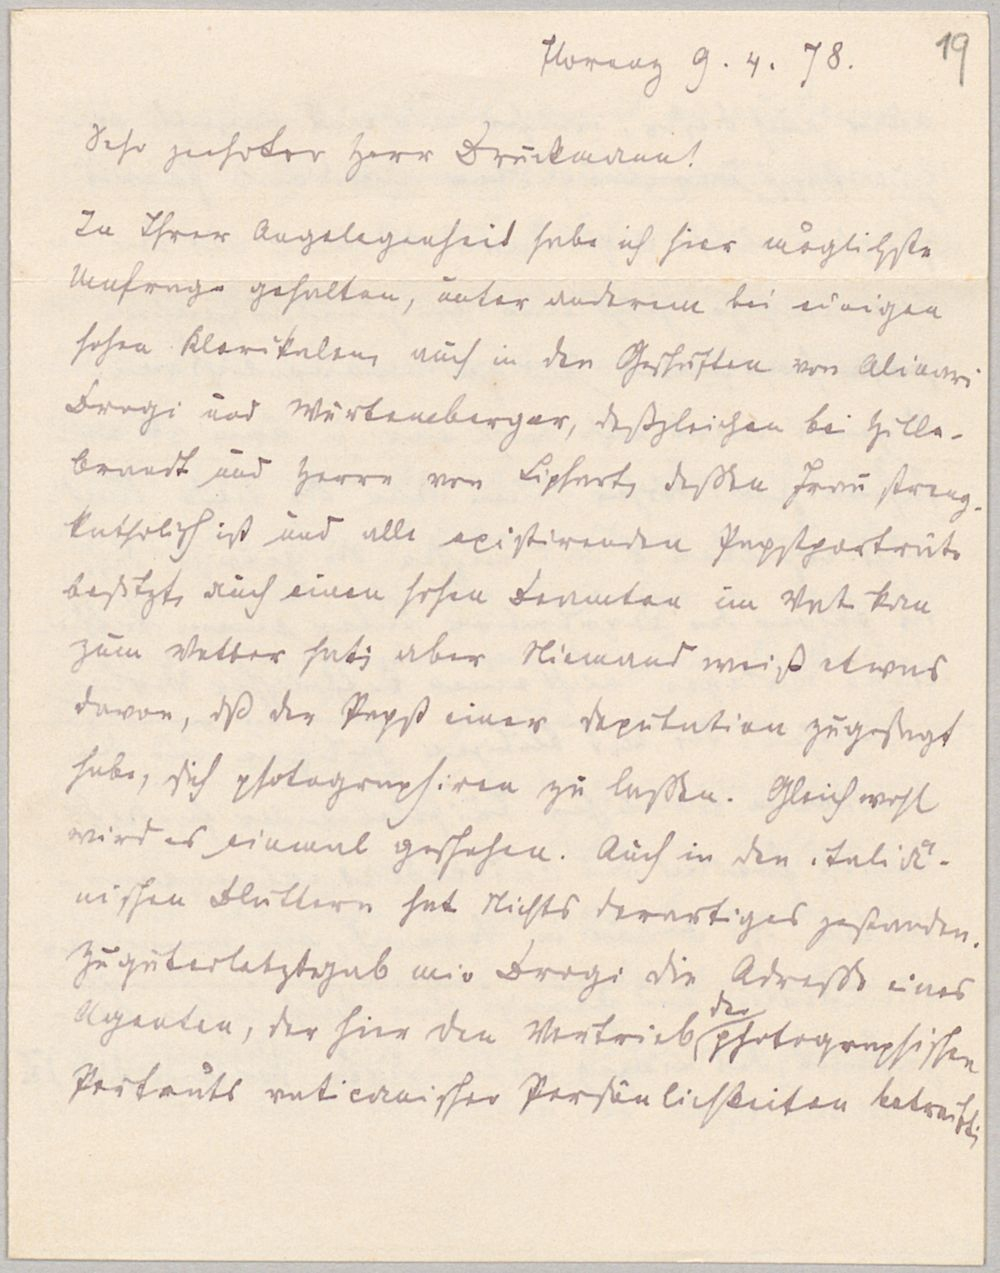 Florenz 9. 4. 78.
19
Sehr geehrter Herr Bruckmann!
In Ihrer Angelegenheit habe ich hier möglichste
Umfrage gehalten, unter anderem bei einigen
hohen Klerikalen, auch in den Geschäften von Alinari
Brogi und Würtemberger, deßgleichen bei Hille-
brandt und Herrn von Liphart, dessen Frau streng-
katholisch ist und alle existirenden Papstporträts
besitzt, auch einen hohen Beamten im Vatikan
zum Vetter hat; aber Niemand weiß etwas
davon, dß der Papst einer Deputation zugesagt
habe, sich photographiren zu lassen. Gleichwohl
wird es einmal geschehen. Auch in den italiä-
nischen Blättern hat Nichts derartiges gestanden.
Zuguterletzt gab mir Brogi die Adresse eines
Agenten, der hier den Vertrieb der photographischen
Porträts vaticanischer Persönlichkeiten betreibt;